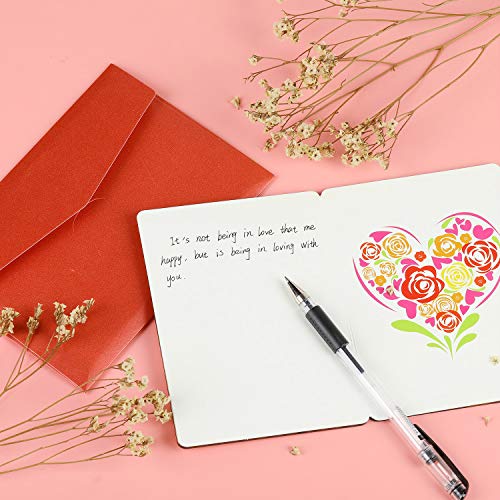 It's not being in love that me
happy, but is being in loving with
you.